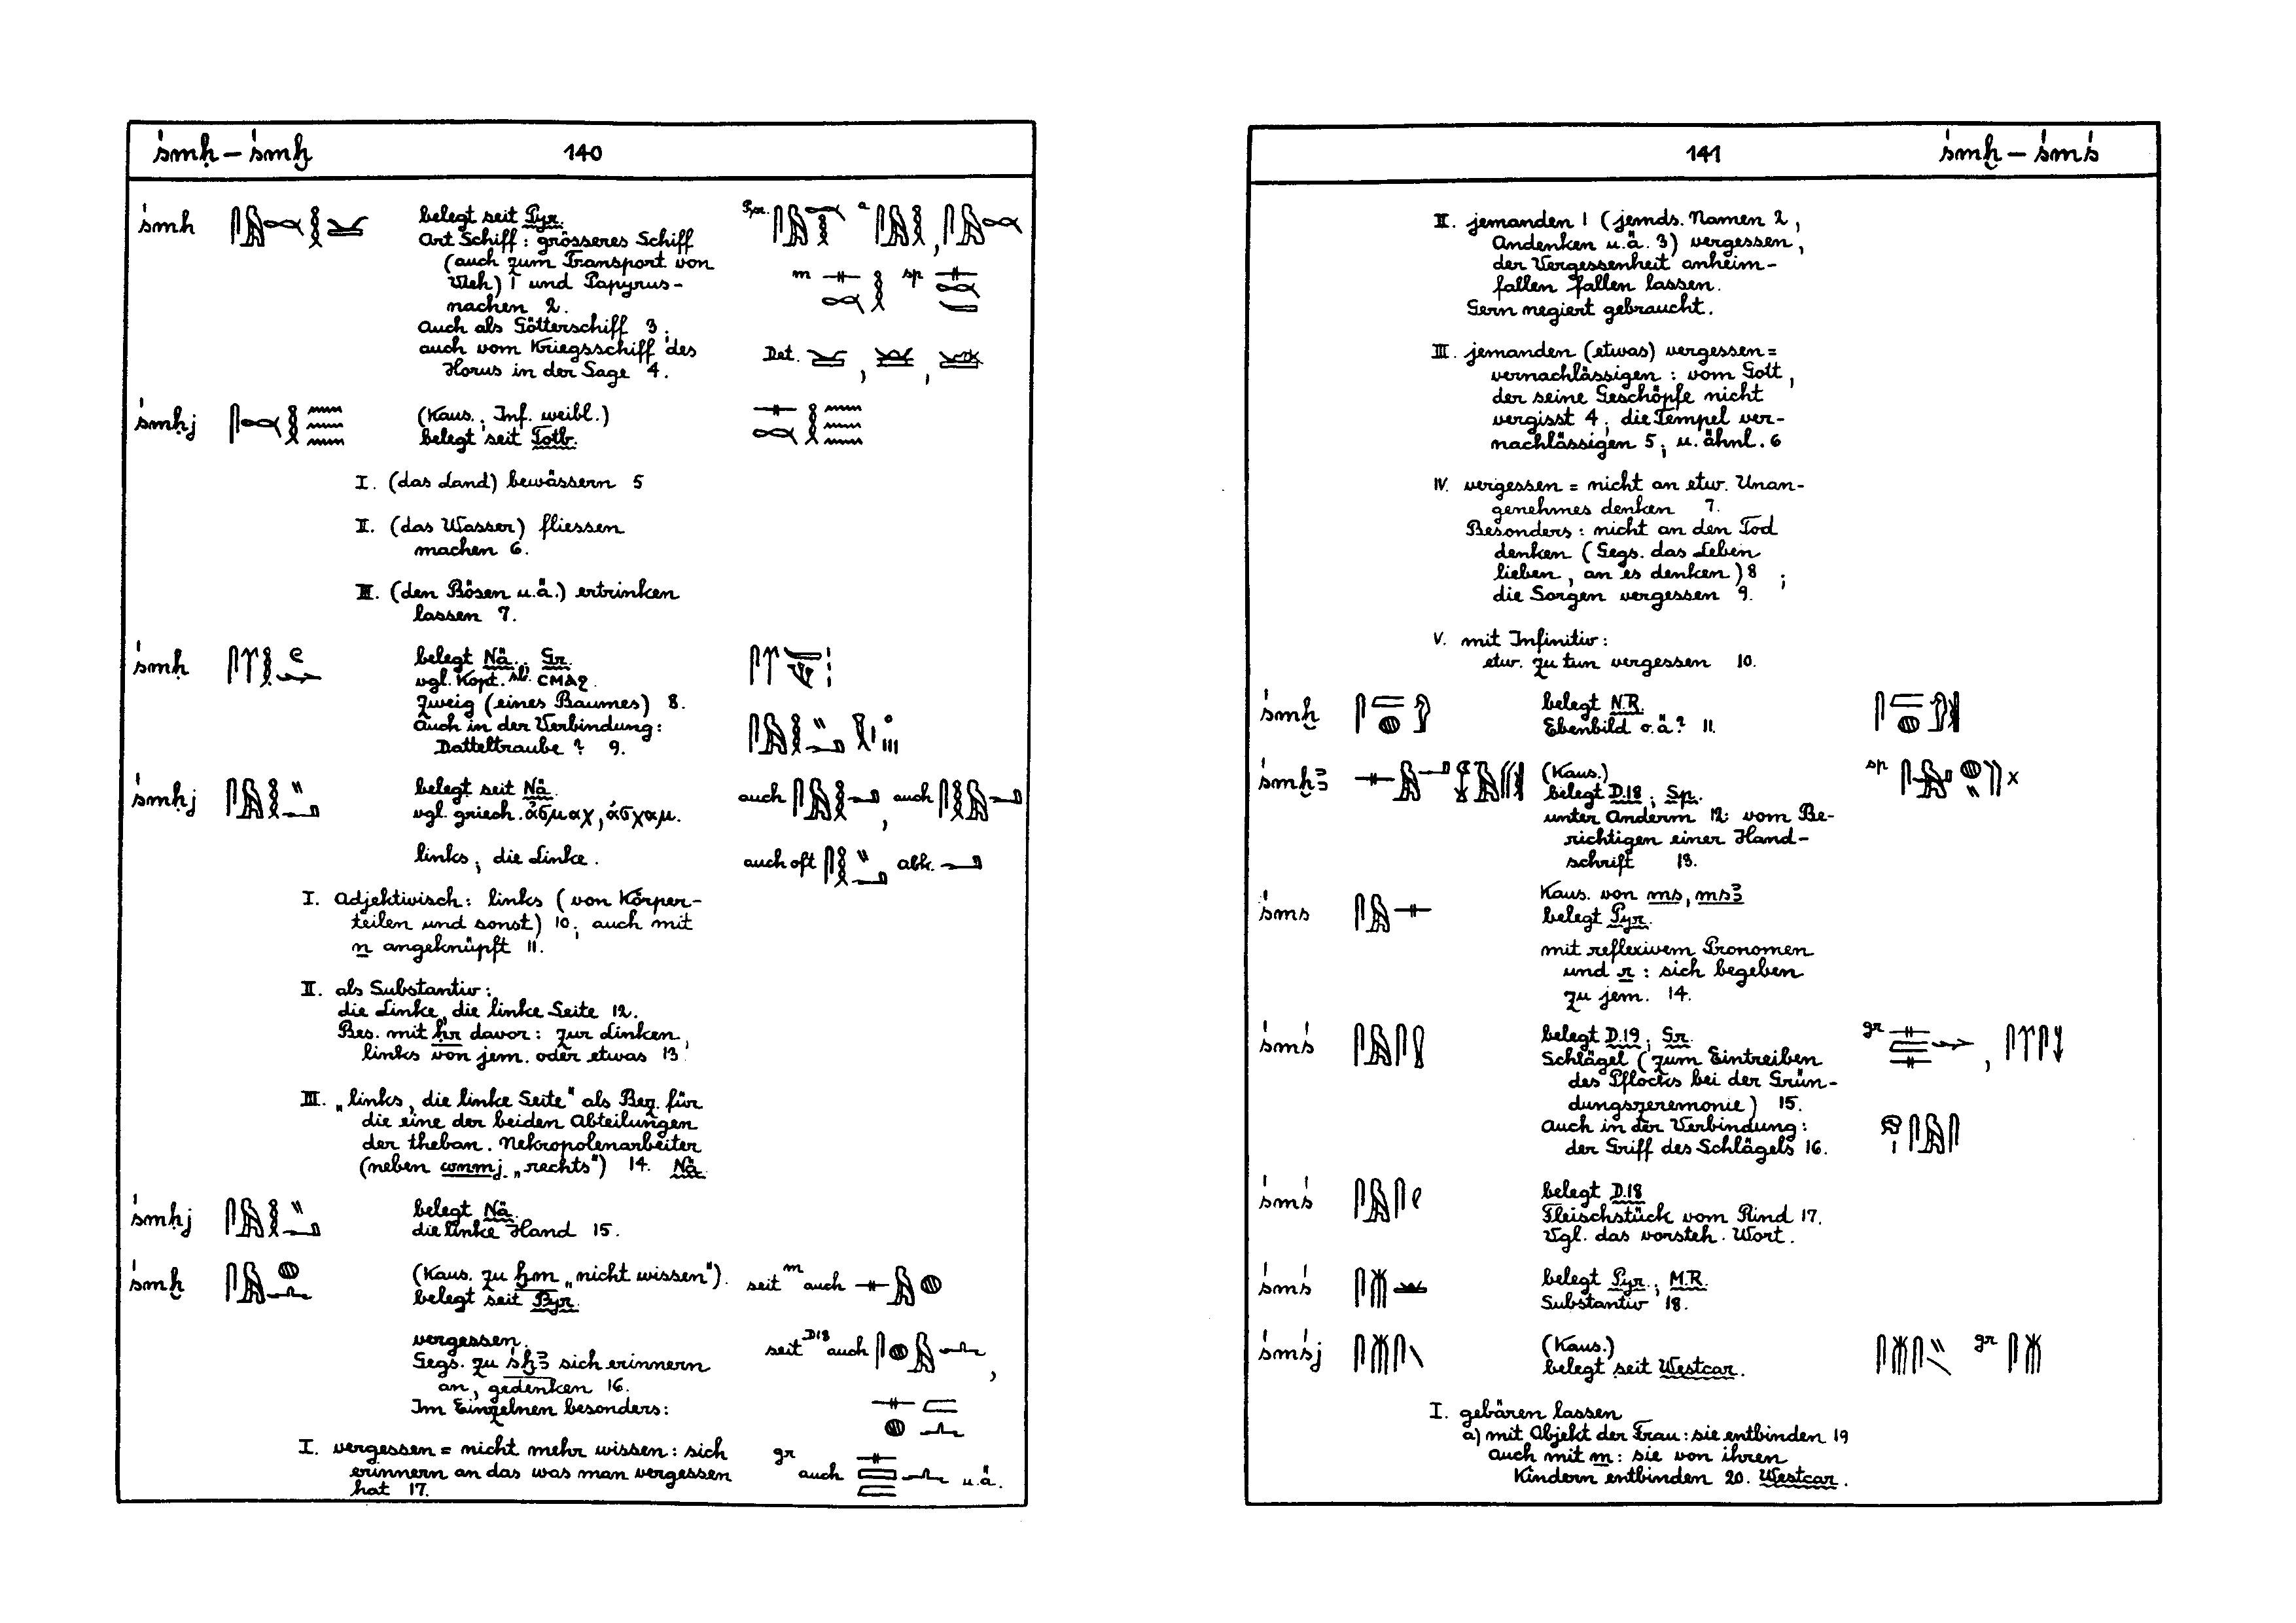 śmḥ – śmḫ 140
śmḥ belegt seit Pyr.
Art Schiff: grösseres Schiff
(auch zum Transport von
Vieh) 1 und Papyrus-
nachen 2.
Auch als Götterschiff 3;
auch vom Kriegsschiff des
Horus in der Sage 4.
Pyr. a
m sp
Det. , ,
śmḥj (Kaus.; Inf. weibl.)
belegt seit Totb.
I. (das Land) bewässern 5
II. (das Wasser) fliessen
machen 6.
III. (den Bösen u.ä.) ertrinken
lassen 7.
śmḥ belegt Nä.; Gr.
vgl. Kopt. sb. CMAϨ.
Zweig (eines Baumes) 8.
Auch in der Verbindung:
Datteltraube ? 9.
śmḥj belegt seit Nä.
vgl. griech. ἀσμαχ, ἀσχαμ.
auch , auch
links; die Linke.
auch oft abk.
I. Adjektivisch: links (von Körper-
teilen und sonst) 10; auch mit
n angeknüpft 11.
II. als Substantiv:
die Linke, die linke Seite 12.
Bes. mit ḥr davor: zur Linken,
links von jem. oder etwas 13.
III. „links, die linke Seite" als Bez. für
die eine der beiden Abteilungen
der theban. Nekropolenarbeiter
(neben wnmj „rechts") 14. Nä.
śmḥj belegt Nä.
die linke Hand 15.
śmḫ (Kaus. zu ḫm „nicht wissen").
belegt seit Pyr.
seit m auch
vergessen.
Gegs. zu śḫꜣ sich erinnern
an, gedenken 16.
Im Einzelnen besonders:
seit D18 auch ,
I. vergessen = nicht mehr wissen: sich
erinnern an das was man vergessen
hat 17.
gr auch u.ä.
141 śmḫ – śmś
II. jemanden 1 (jemds. Namen 2,
Andenken u.ä. 3) vergessen,
der Vergessenheit anheim-
fallen fallen lassen.
Gern negiert gebraucht.
III. jemanden (etwas) vergessen =
vernachlässigen: vom Gott,
der seine Geschöpfe nicht
vergisst 4; die Tempel ver-
nachlässigen 5; u. ähnl. 6
IV. vergessen = nicht an etw. Unan-
genehmes denken 7.
Besonders: nicht an den Tod
denken (Gegs. das Leben
lieben, an es denken) 8 ;
die Sorgen vergessen 9.
V. mit Infinitiv:
etw. zu tun vergessen 10.
śmḫ belegt N.R.
Ebenbild o.ä? 11.
śmḫꜣ (Kaus.)
belegt D.18; Sp.
unter Anderm 12: vom Be-
richtigen einer Hand-
schrift 13.
sp
śms Kaus. von ms, msꜣ
belegt Pyr.
mit reflexivem Pronomen
und r: sich begeben
zu jem. 14.
śmś belegt D.19; Gr.
Schlägel (zum Eintreiben
des Pflocks bei der Grün-
dungszeremonie) 15.
Auch in der Verbindung:
der Griff des Schlägels 16.
gr ,
śmś belegt D.18
Fleischstück vom Rind 17.
Vgl. das vorsteh. Wort.
śmś belegt Pyr.; M.R.
Substantiv 18.
śmśj (Kaus.)
belegt seit Westcar.
gr
I. gebären lassen
a) mit Objekt der Frau: sie entbinden 19
auch mit m: sie von ihren
Kindern entbinden 20. Westcar.